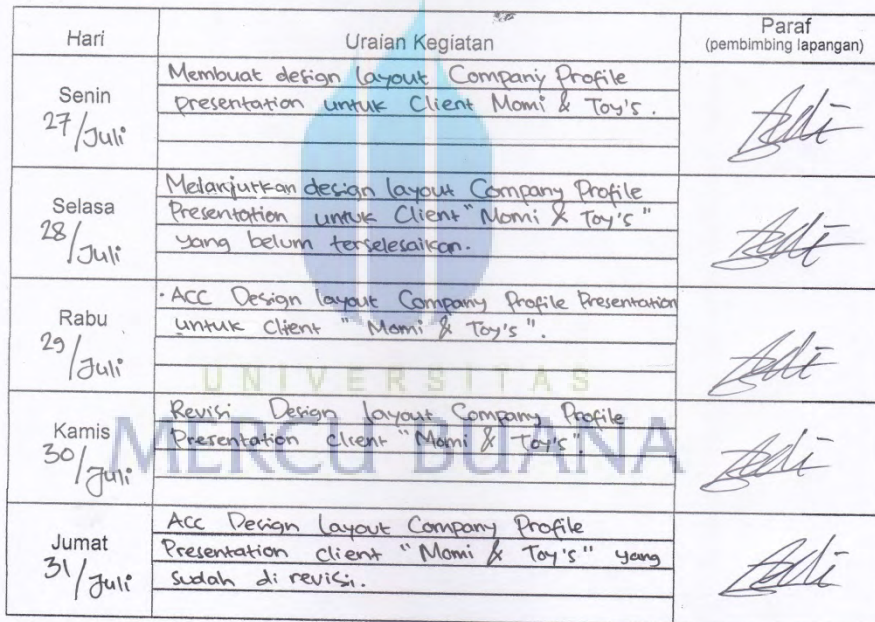 Hari Uraian Kegiatan Paraf
(pembimbing lapangan)
Senin
27/Juli
Membuat design layout Company Profile
presentation untuk Client Momi & Toy's.
Selasa
28/Juli
Melanjutkan design layout Company Profile
Presentation untuk Client "Momi & Toy's"
yang belum terselesaikan.
Rabu
29/Juli
· ACC Design layout Company Profile Presentation
untuk Client "Momi & Toy's".
Kamis
30/Juli
Revisi Design layout Company Profile
Presentation client "Momi & Toy's".
Jumat
31/Juli
Acc Design layout Company Profile
Presentation client "Momi & Toy's" yang
sudah di revisi.
UNIVERSITAS
MERCU BUANA